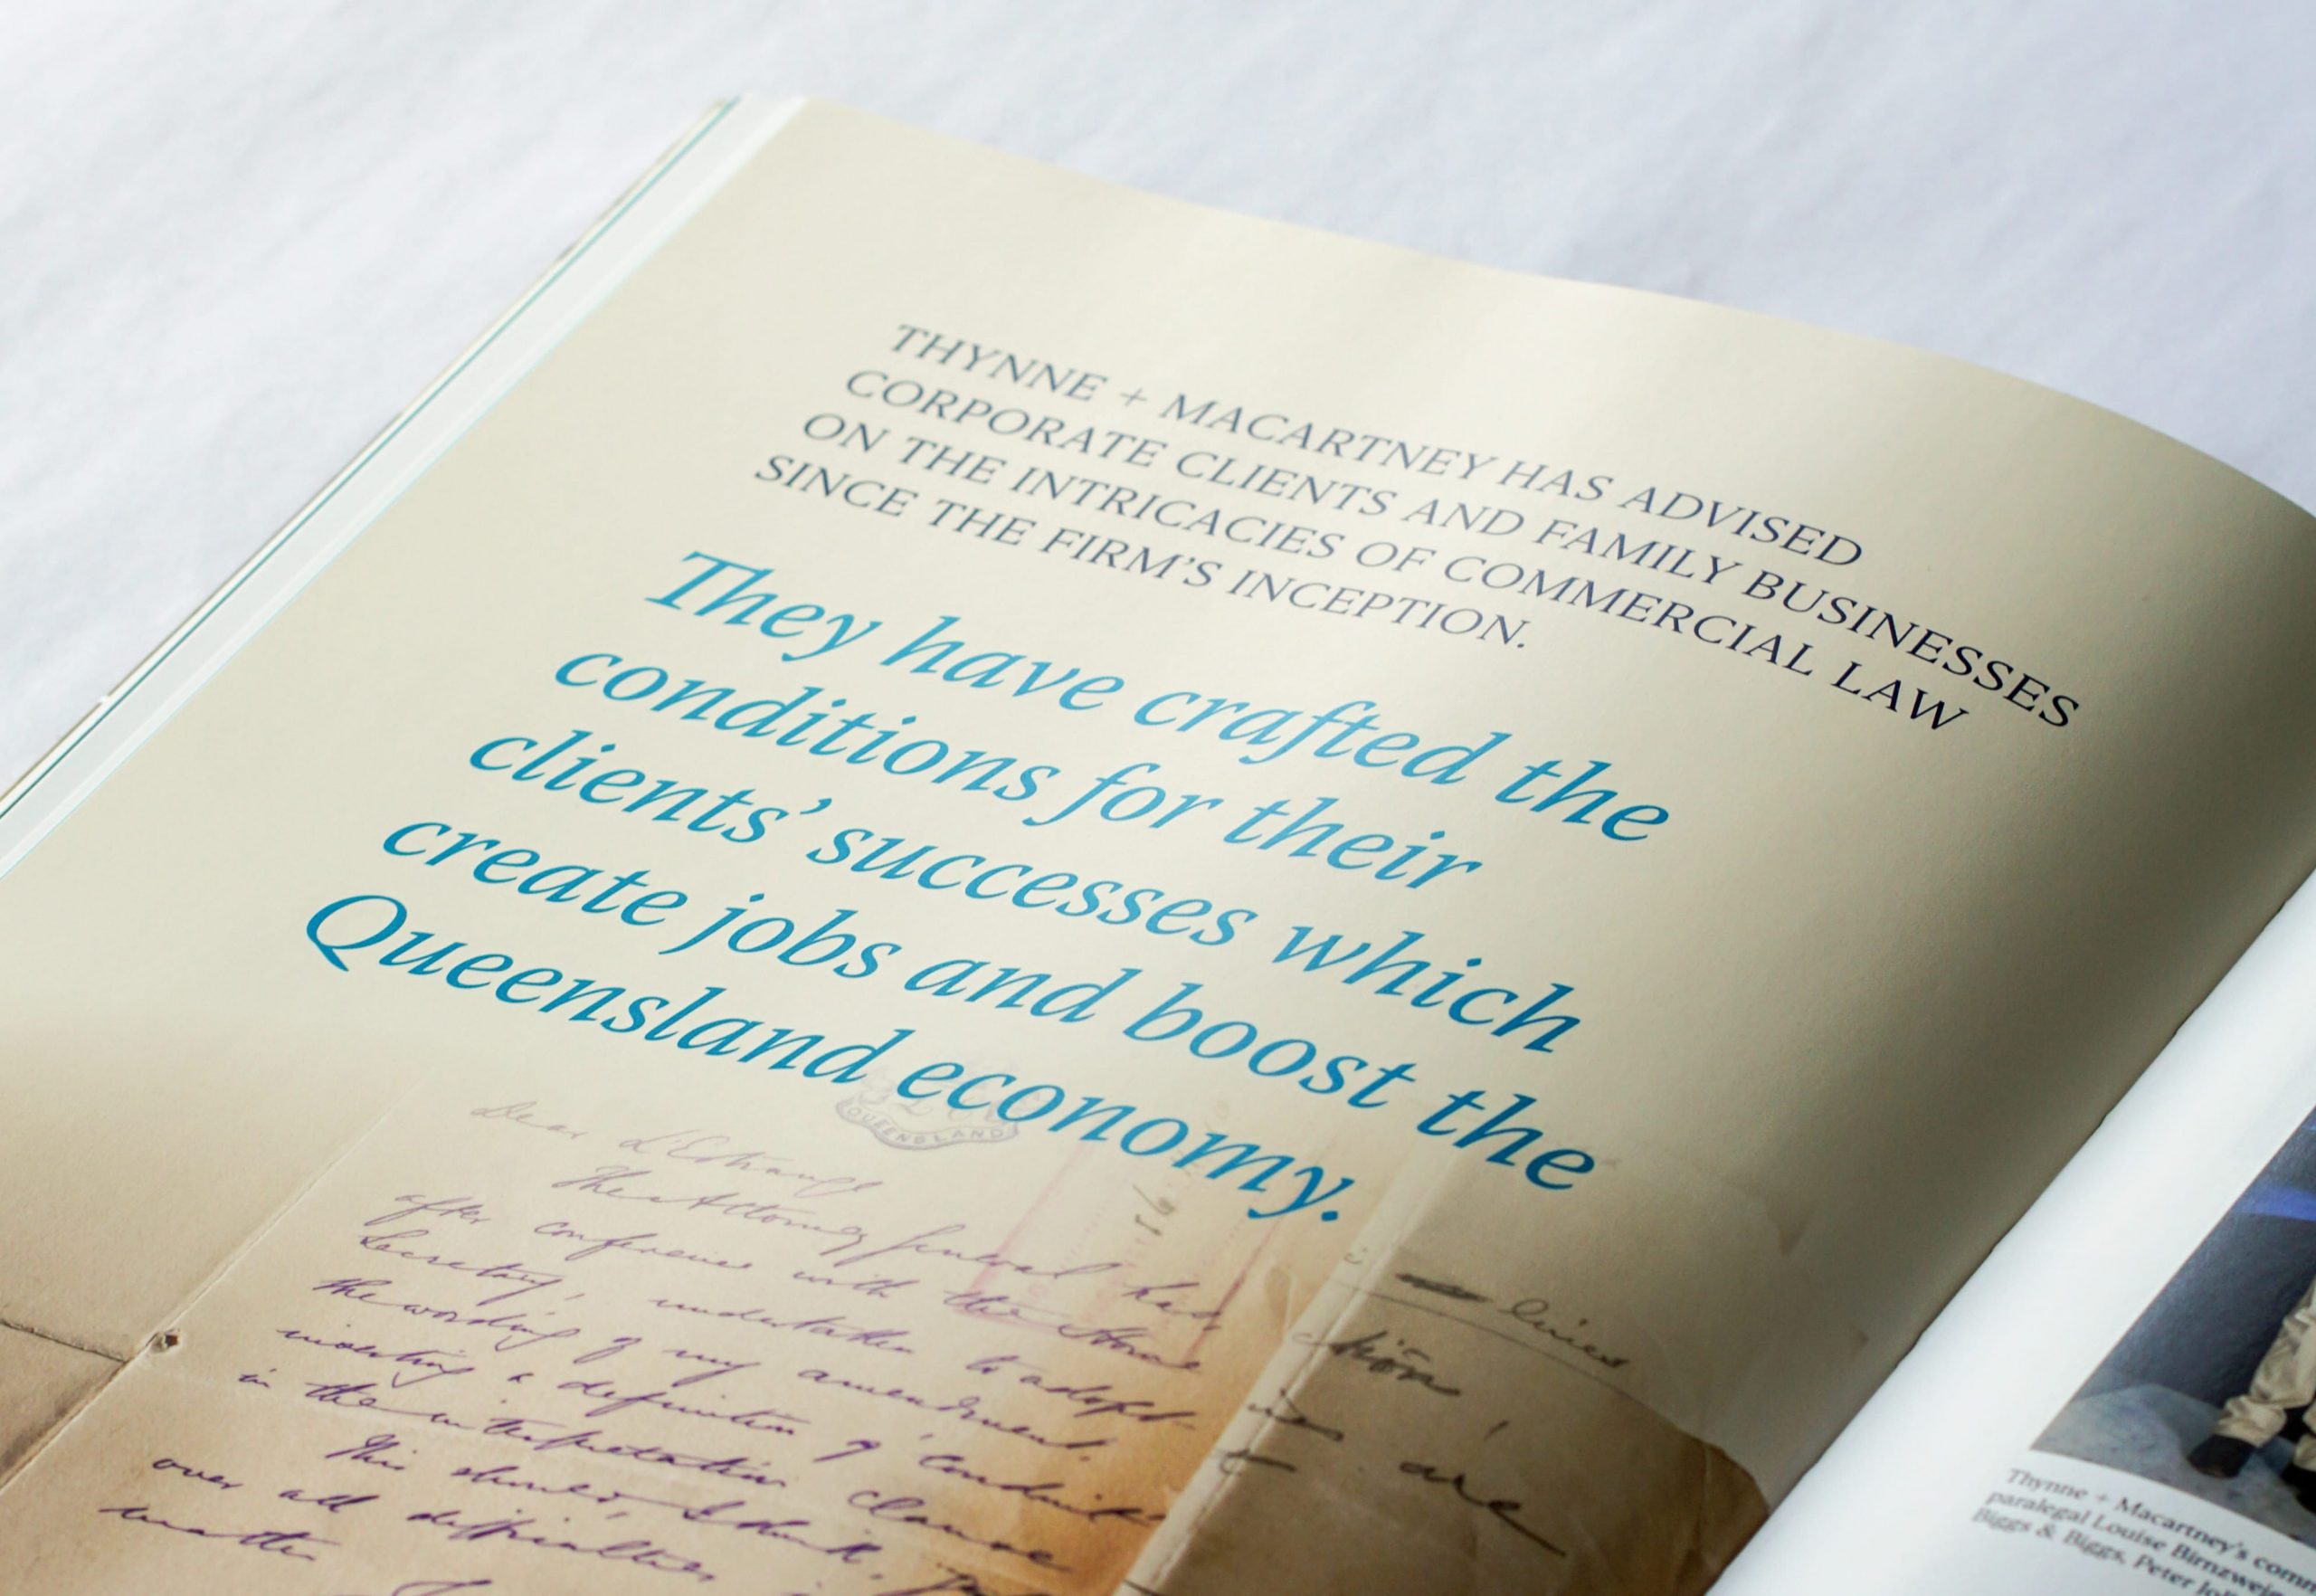 THYNNE + MACARTNEY HAS ADVISED
CORPORATE CLIENTS AND FAMILY BUSINESSES
ON THE INTRICACIES OF COMMERCIAL LAW
SINCE THE FIRM'S INCEPTION.
They have crafted the
conditions for their
clients' successes which
create jobs and boost the
Queensland economy.
QUEENSLAND
Dear L'Estrange
The Attorney General has
after conference with the Home
Secretary, undertaken to adopt
the wording of my amendment
inserting a definition of Conduit
in the interpretation clause
This should, I think,
over all difficulties
matter
lines
are
Thynne + Macartney's comm
paralegal Louise Birnzweig
Biggs & Biggs, Peter